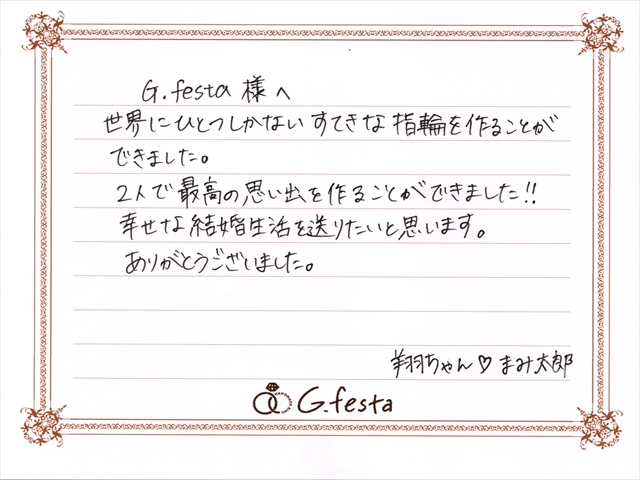 G.festa 様へ
世界にひとつしかない すてきな 指輪を作ることが
できました。
2人で最高の思い出を作ることができました!!
幸せな結婚生活を送りたいと思います。
ありがとうございました。
翔ちゃん♡まみ太郎
G.festa